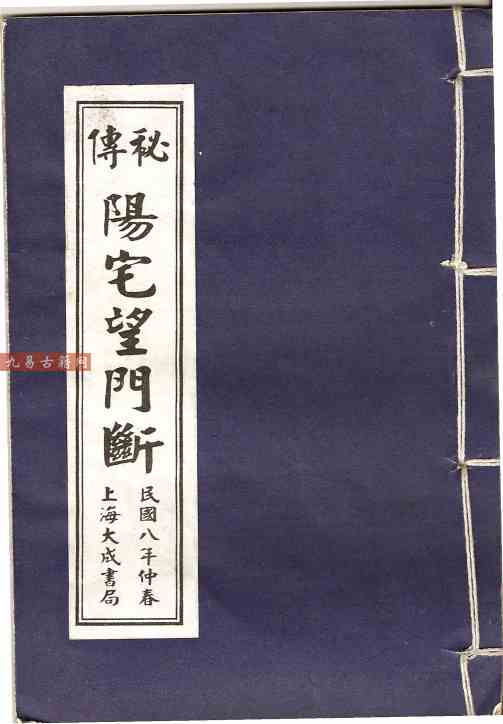 秘傳
陽宅望門斷
民國八年仲春
上海大成書局
九易古籍网